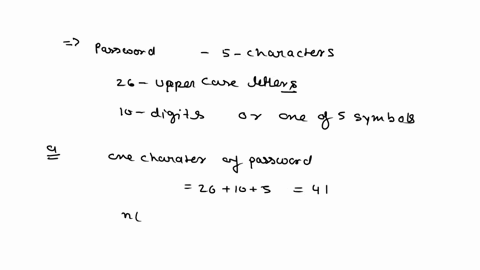 => Password - 5 - characters
26 - upper case letters
10 - digits or one of 5 symbols
a one charater of password
= 26 + 10 + 5 = 41
n(